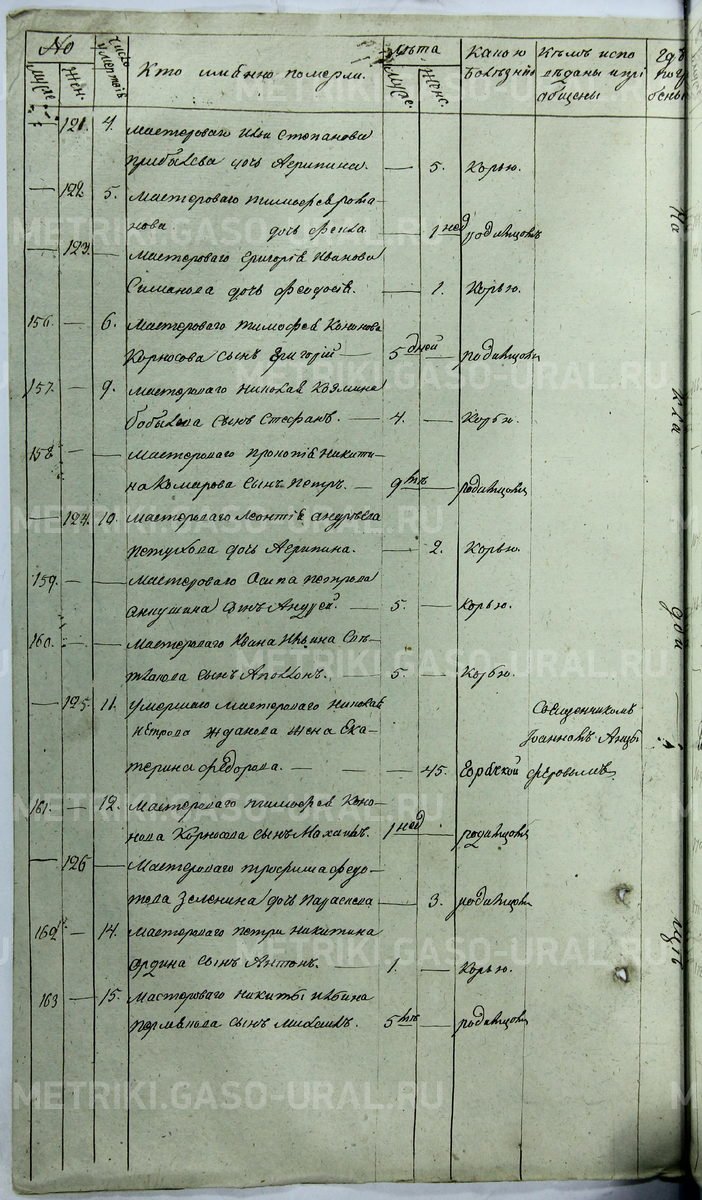 № Число умертвiя Кто имянно померли. лѣта Какою болѣзнiю Кѣмъ испо вѣданы и прi общены Гдѣ погр бены
муже. жен. муже. женс.
121. 4. Мастероваго Ильи Степанова
дочь Агрипина. — 5. Корью.
122. 5. Мастероваго Тимофея Рома-
нова дочь Фекла — 1 нед родимцовъ
123. — Мастероваго Григорiя Иванова
Симанова дочь Феодосiя. — 1. Корью.
156. — 6. Мастероваго Тимофея Кононова
Корносова сынъ Григорiй — 5 дней родимцовъ
157. — 9. Мастероваго Николая Козмина
Бобылева сынъ Стефанъ. — 4. — Корью.
158 — — Мастероваго Прокопiя Никити-
на Комарова сынъ Петръ. — родимцовъ
— 124. 10. Мастероваго Леонтiя Андреева
Петухова дочь Агрипина. — 2. Корью.
159. — — Мастероваго Осипа Петрова
Аннушина сынъ Андрей. — 5. — Корью.
160. — — Мастероваго Ивана Ильина
сынъ Аполонъ. — 5 — Корью.
— 125. 11. Умершаго мастероваго Николая Священникомъ
Петрова Жданова жена Ека- Iоанномъ
терина Федорова. — — 45. Горячкой
161. — 12. Мастероваго Тимофея Коно-
нова Корносова сынъ 1 нед — родимцовъ
— 126 — Мастероваго Трофима Федо-
това Зеленина дочь Параскева — 3. родимцовъ
162 — 14. Мастероваго Петра Никитина
сынъ Антонъ. — 1. — Корью.
163 — 15. Мастероваго Никиты
сынъ Михаилъ. 5 — родимцовъ
На
кла
дби
METRIKI.GASO-URAL.RU